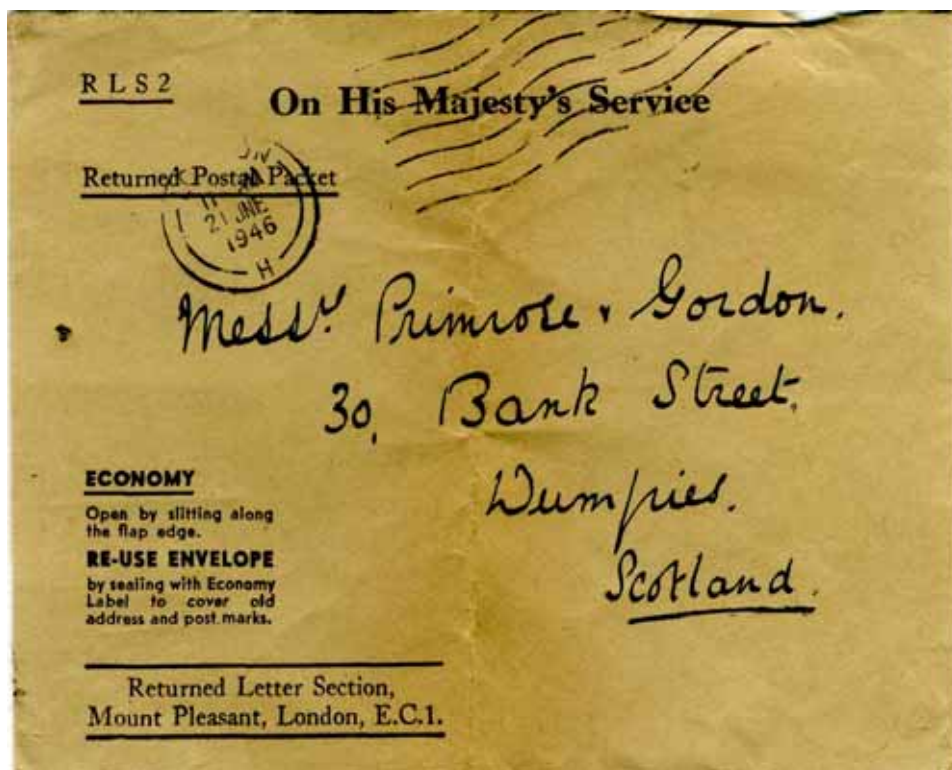 RLS2
On His Majesty's Service
Returned Postal Packet
21 JNE
1946
H
Mess.rs Primrose & Gordon.
30, Bank Street,
Dumfries.
Scotland.
ECONOMY
Open by slitting along
the flap edge.
RE-USE ENVELOPE
by sealing with Economy
Label to cover old
address and post marks.
Returned Letter Section,
Mount Pleasant, London, E.C.1.